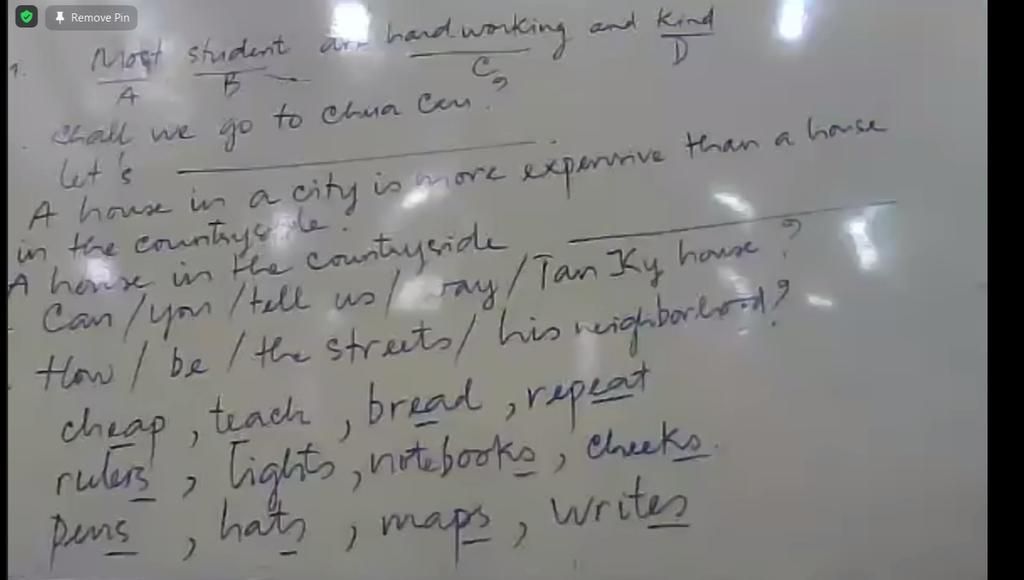 Remove Pin
1. Most student are hard working and kind
A B C D
Shall we go to Chua Cau?
Let's ____________.
A house in a city is more expensive than a house
in the countryside.
A house in the countryside ____________
Can/you/tell us/way/Tan Ky house?
How/be/the streets/his neighborhood?
cheap, teach, bread, repeat
rulers, lights, notebooks, cheeks.
pens, hats, maps, writes